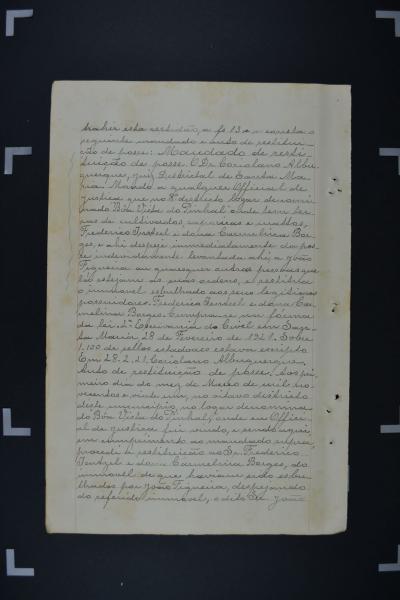 trahir esta certidão, a fs 13 e a constar o
seguinte mandado e auto de restitui-
ção de posse: Mandado de resti-
tuição de posse. O Dr Coriolano Albu-
querque, Juiz Districtal de Santa Ma-
ria. Mando a qualquer Official de
Justiça que no 8º districto logar denomi-
nado Bôa Vista do Pinhal onde tem ter-
ras de cultivados
Frederico Jentzel e dona Carmelina Bor-
ges, e ahi despeje immediatamente da pos-
se indevidamente levantada ahi a João
Figueira ou quaesquer outras pessoas que
lá estejam às suas ordens, e restitua
o immovel esbulhado aos seus legitimos
possuidores Frederico Jentzel e dona Car-
melina Borges. Cumpra-se na fórma
da lei. 2ª Escrivania do Civel em San-
ta Maria 28 de Fevereiro de 1921. Sobre
1.100 de sellos estadoaes estava escripto
Em 28.2.21. Coriolano Albuquerque.
Auto de restituição de posse. Aos pri-
meiro dia do mez de Março de mil no-
vecentos e vinte um, no oitavo districto
deste municipio, no logar denomina-
do Bôa Vista do Pinhal, onde eu Offici-
al de Justiça fui vindo, e sendo aqui
em cumprimento ao mandado supra,
procedi à restituição ao Sr. Frederico
Jentzel e dona Carmelina Borges, do
immovel de que haviam sido esbu-
lhados por João Figueira, despejando
do referido immovel, o dito Sr. João